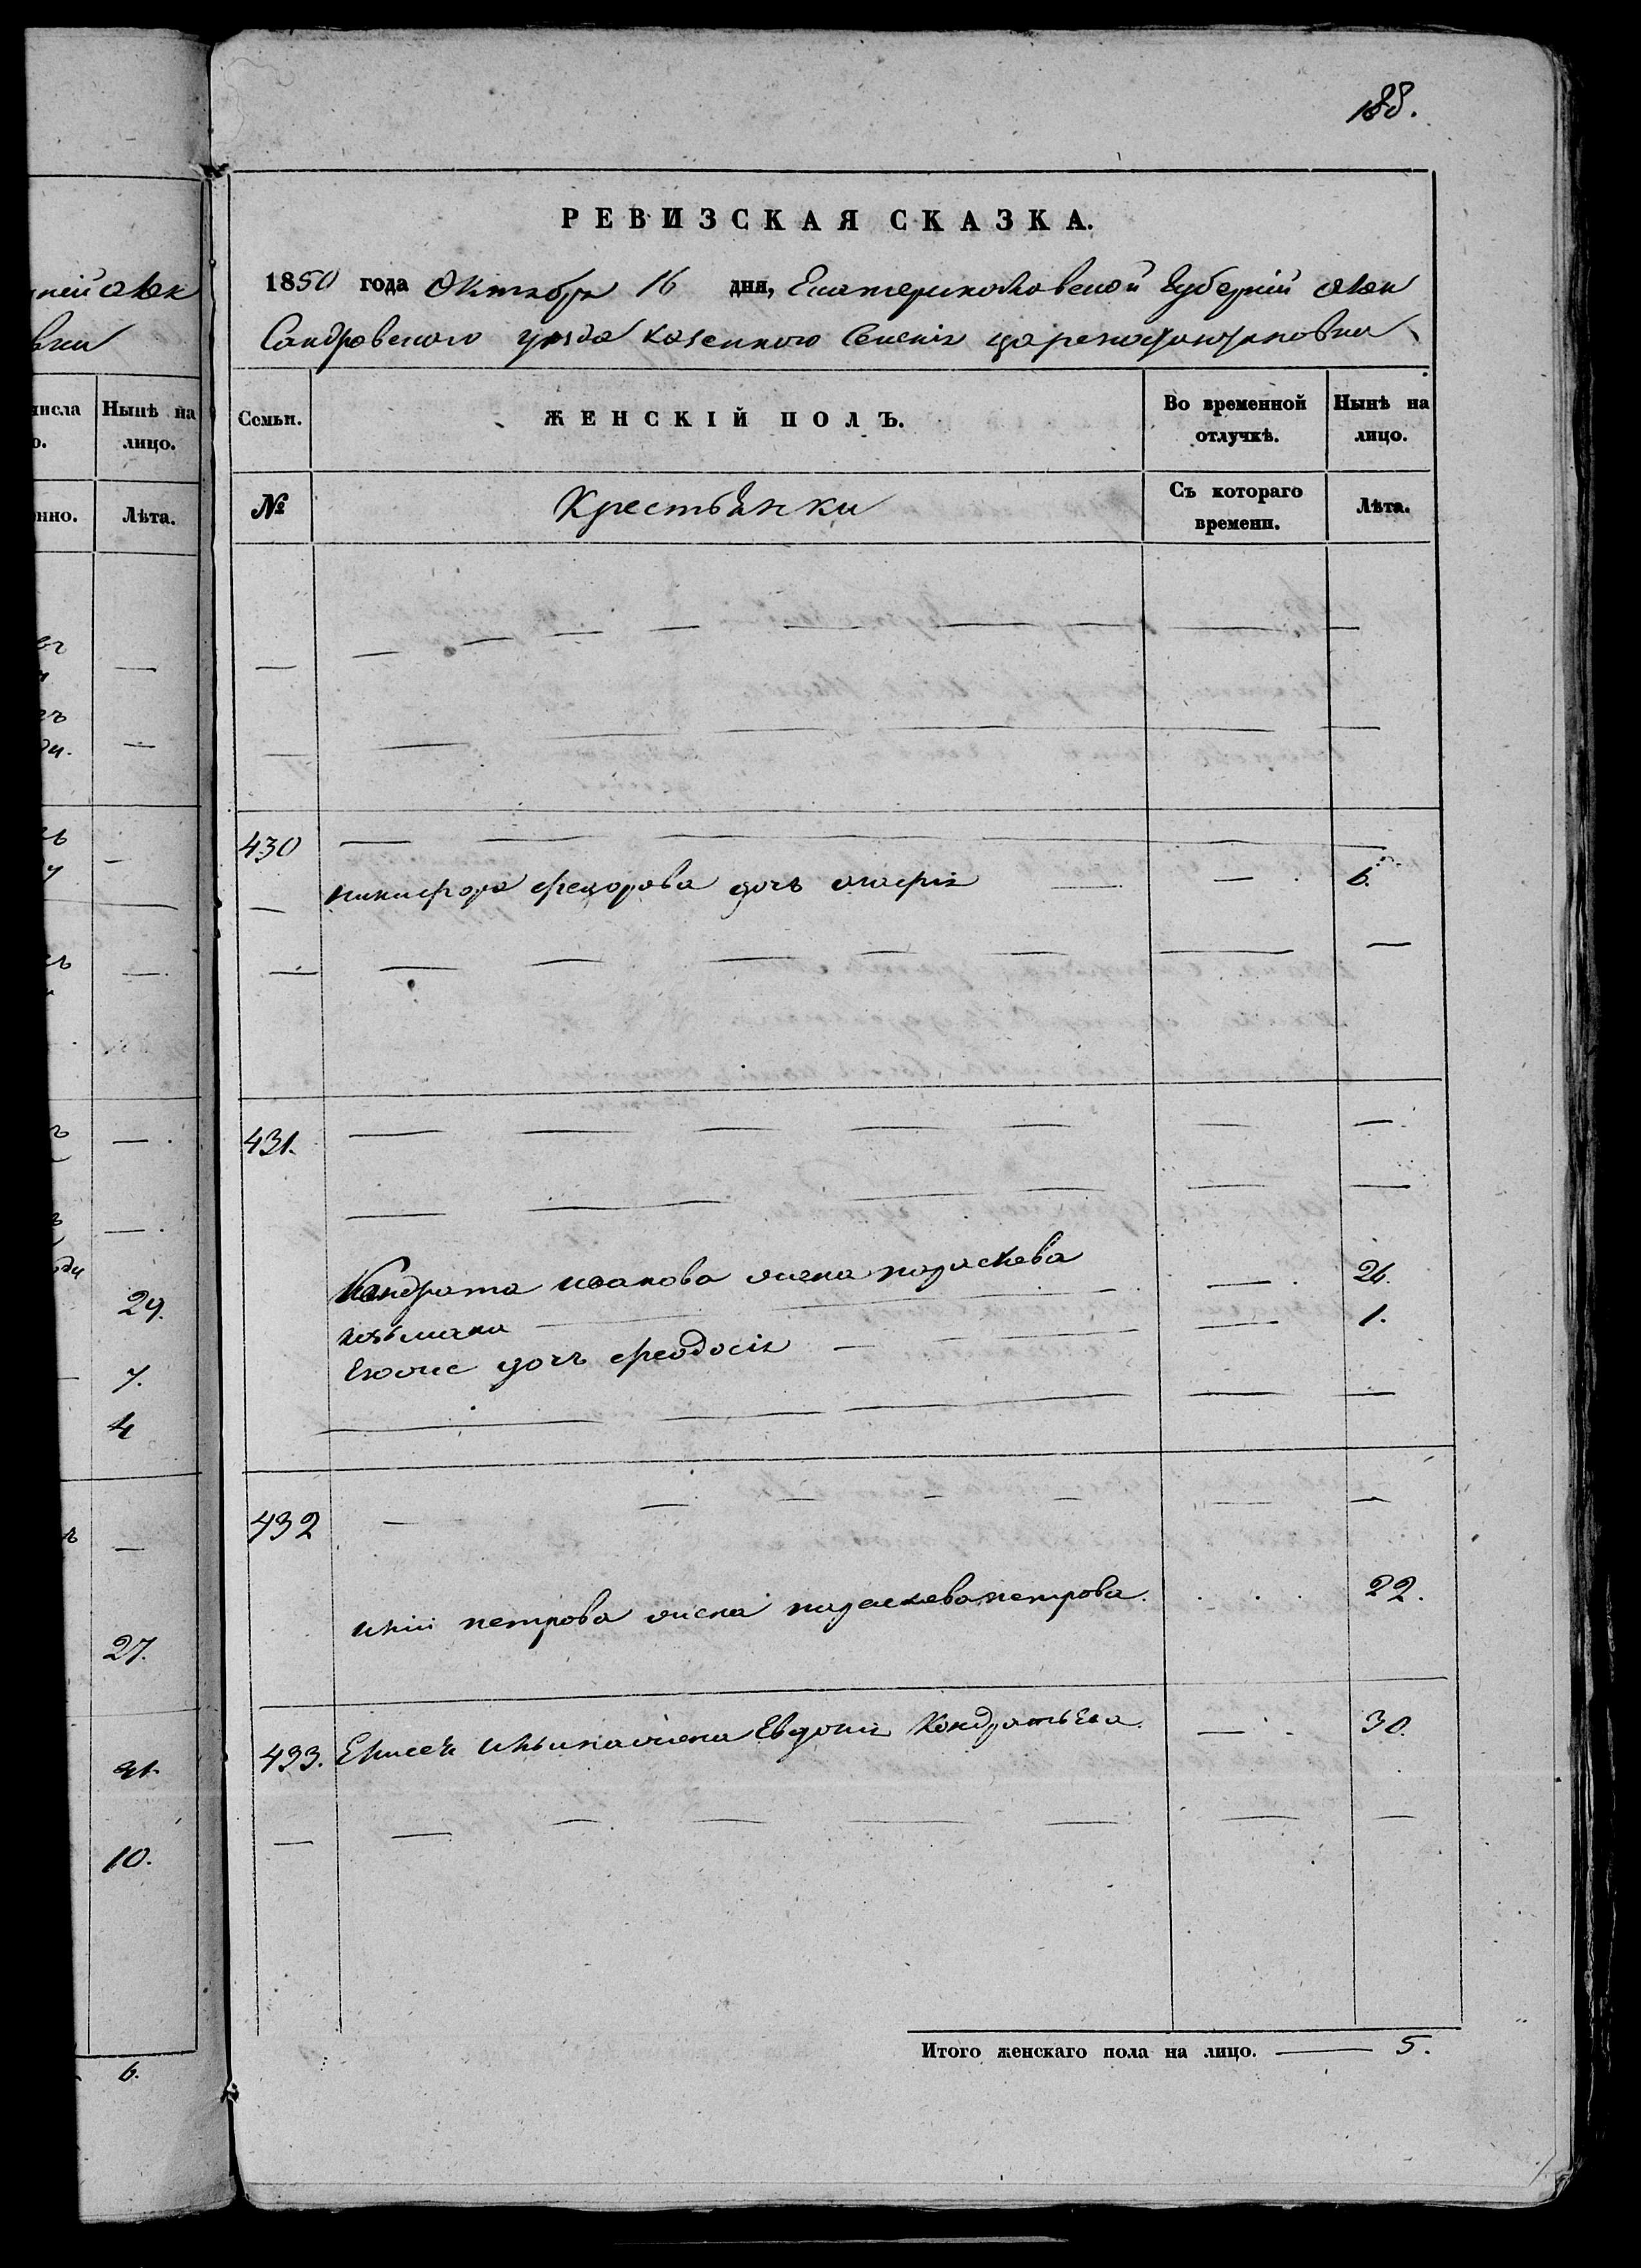 188.
РЕВИЗСКАЯ СКАЗКА.
1850 года Октября 16 дня, Екатеринославской Губерніи Алек
Сандровского уезда казенного Селенія цареконстантиновки
Семьи. ЖЕНСКІЙ ПОЛЪ. Во временной отлучкѣ. Нынѣ на лицо.
№ Крестьянки Съ котораго времени. Лѣта.
430
никифора федорова дочь 6.
431.
Кондрата иванова жена параскева 26.
Кузьмина
Его же дочь феодосія 1.
432
петрова жена параскева петрова. 22.
433. Елисея ильина жена Евдокия Кондратьева. 30.
Итого женскаго пола на лицо. 5.
ней Алек
вки
числа Нынѣ на
лицо.
Лѣта.
29.
7.
4
27.
10.
6.